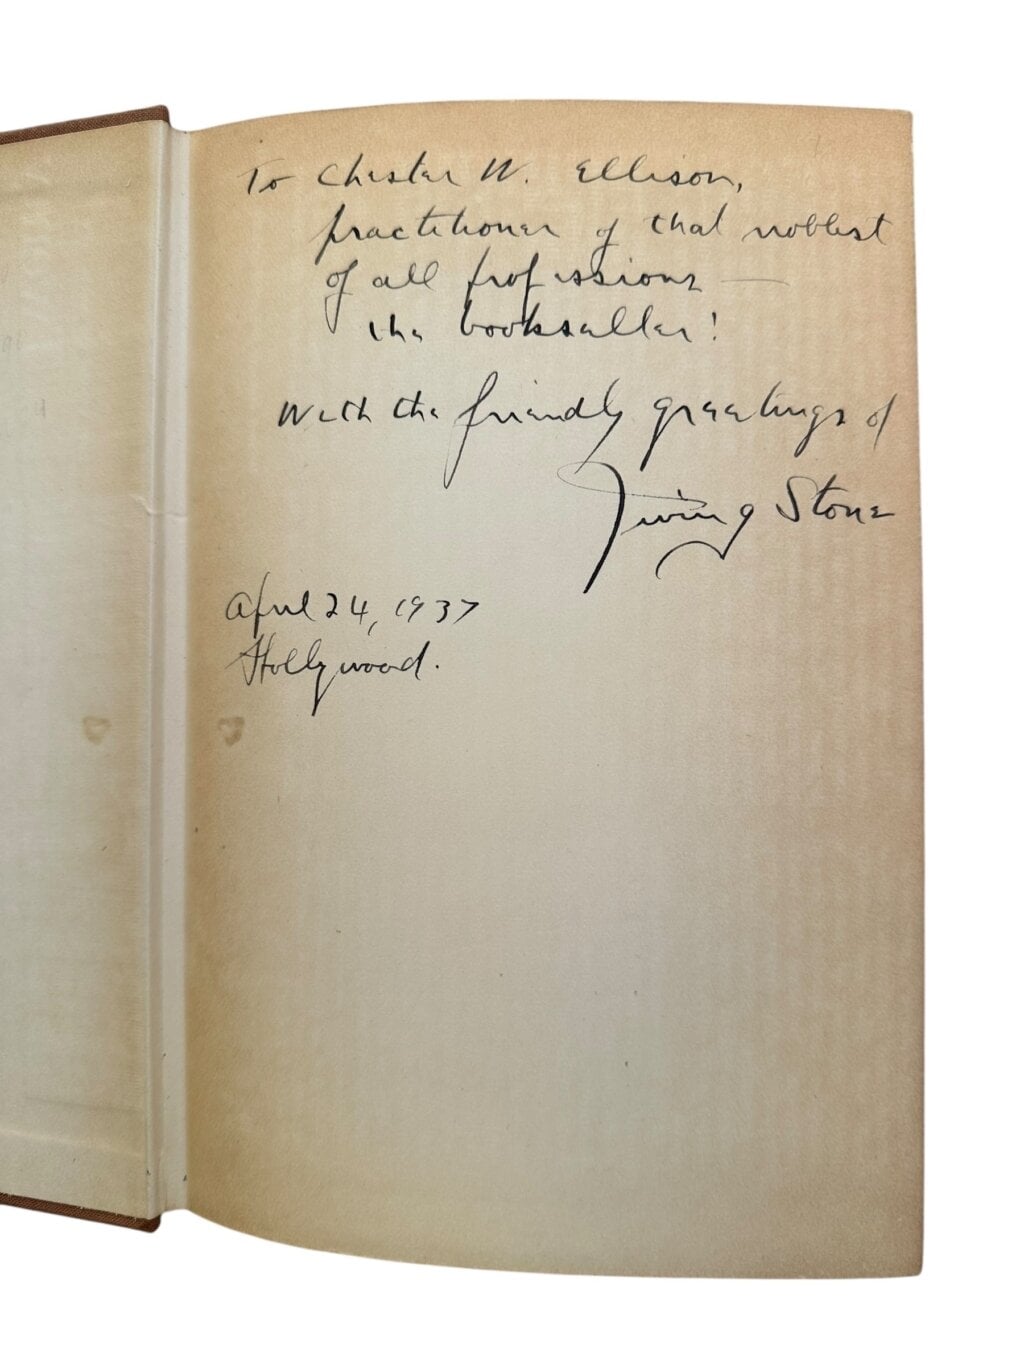 To Chester W. Ellison,
practitioner of that noblest
of all professions —
the bookseller!
With the friendly greetings of
Irving Stone
April 24, 1937
Hollywood.